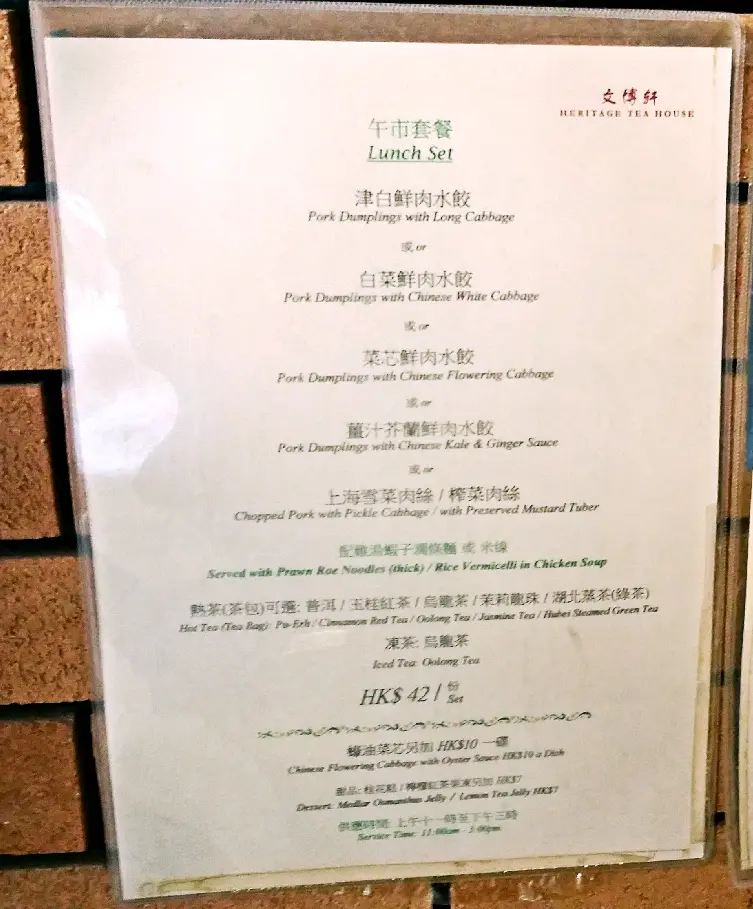 文博軒
HERITAGE TEA HOUSE
午市套餐
Lunch Set
津白鮮肉水餃
Pork Dumplings with Long Cabbage
或 or
白菜鮮肉水餃
Pork Dumplings with Chinese White Cabbage
或 or
菜芯鮮肉水餃
Pork Dumplings with Chinese Flowering Cabbage
或 or
薑汁芥蘭鮮肉水餃
Pork Dumplings with Chinese Kale & Ginger Sauce
或 or
上海雪菜肉絲 / 榨菜肉絲
Chopped Pork with Pickle Cabbage / with Preserved Mustard Tuber
配雞湯蝦子濶條麵 或 米線
Served with Prawn Roe Noodles (thick) / Rice Vermicelli in Chicken Soup
熱茶(茶包)可選: 普洱 / 玉桂紅茶 / 烏龍茶 / 茉莉龍珠 / 湖北蒸茶(綠茶)
Hot Tea (Tea Bag): Pu-Erh / Cinnamon Red Tea / Oolong Tea / Jasmine Tea / Hubei Steamed Green Tea
凍茶: 烏龍茶
Iced Tea: Oolong Tea
HK$ 42 / 份
Set
蠔油菜芯另加 HK$10 一碟
Chinese Flowering Cabbage with Oyster Sauce HK$10 a Dish
甜品: 桂花糕 / 檸檬紅茶啫凍另加 HK$7
Dessert: Medlar Osmanthus Jelly / Lemon Tea Jelly HK$7
供應時間: 上午十一時至下午三時
Service Time: 11:00am - 3:00pm